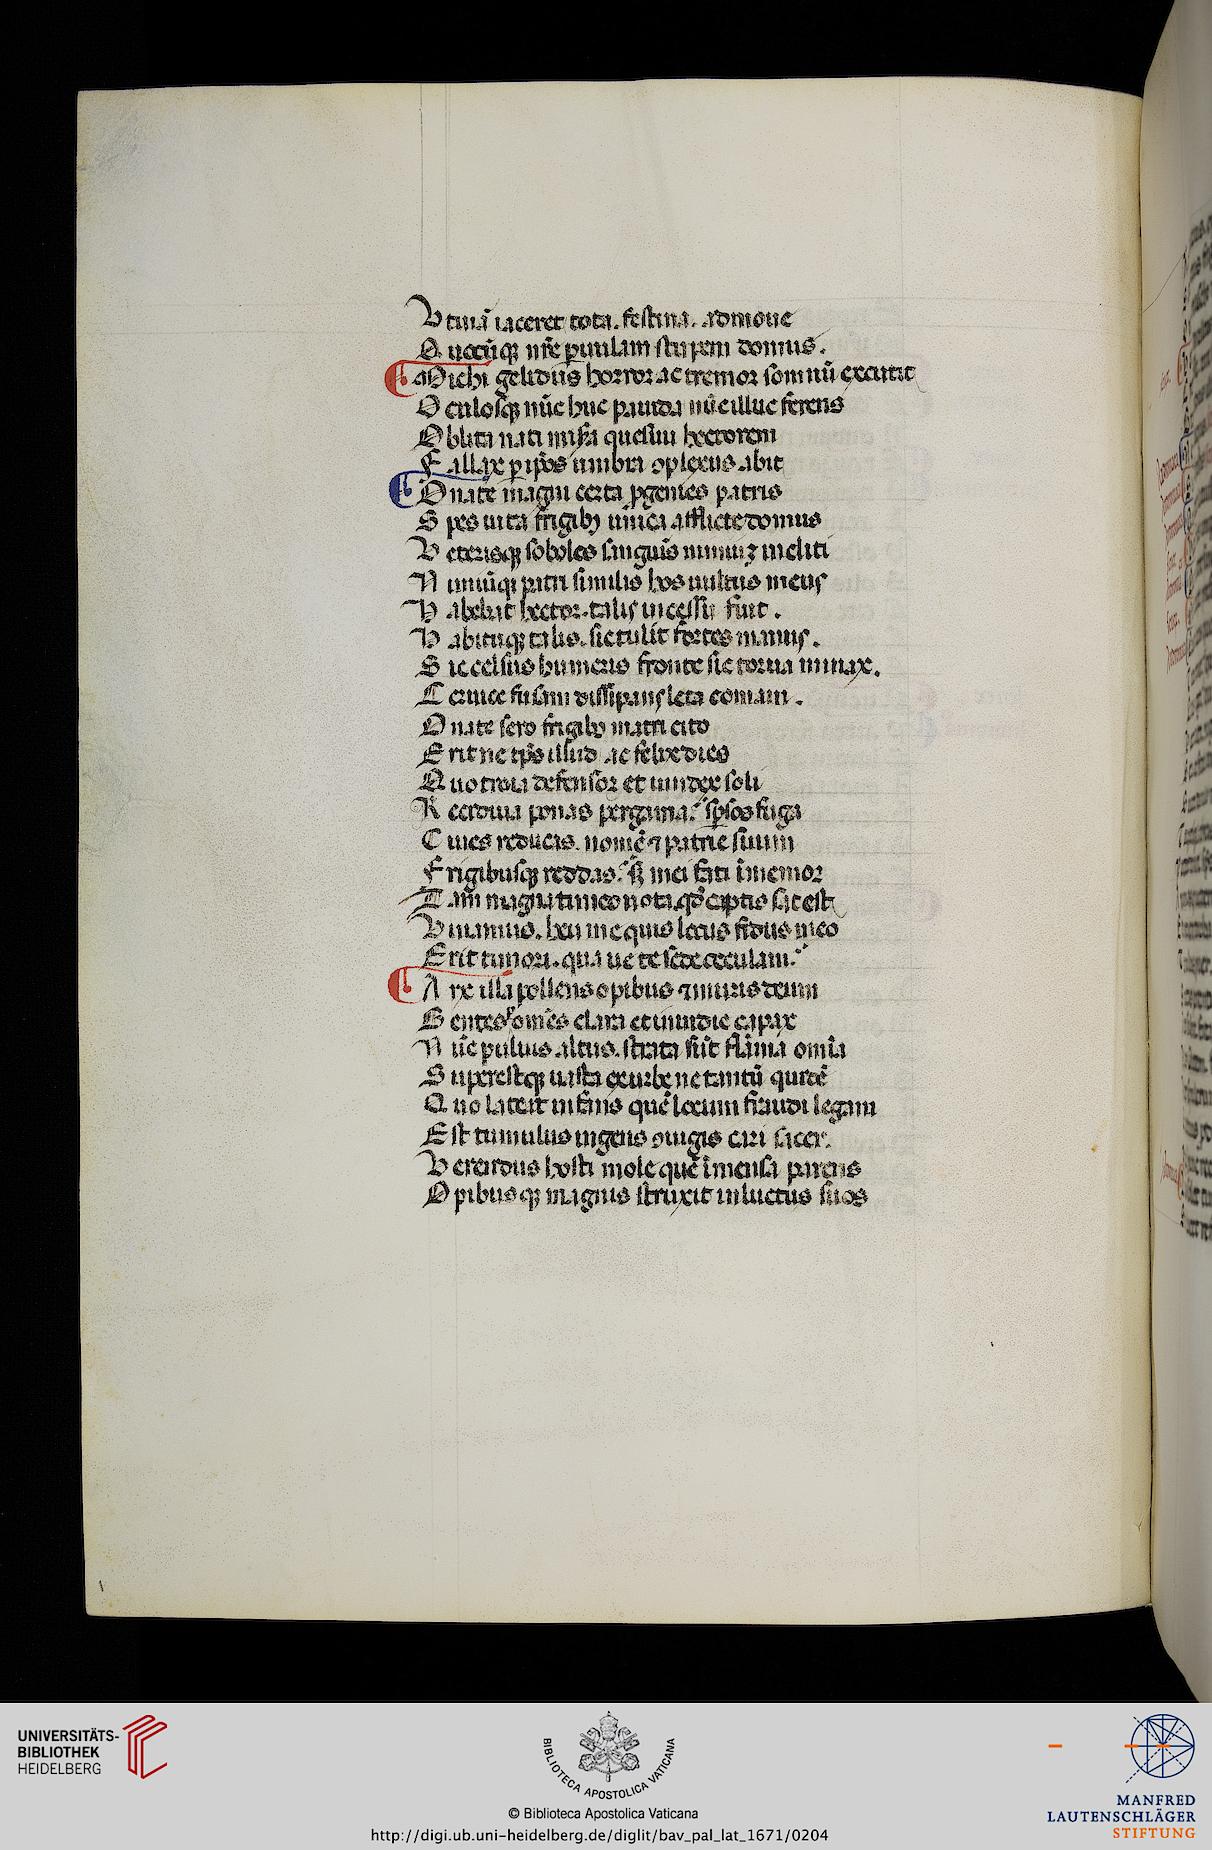 Vtinā iaceret tota. festina. admoue
Quocūqꝫ nr̄e ꝑuulam stirpem domus.
Michi gelidus horror ac tremor somnū excutit
Oculosqꝫ nūc huc pauida nūc illuc ferens
Oblita nati miſ̄a quesiui hectorem
Fallax ꝑ ip̄os umbra ꝯplexus abit
O nate magni certa ꝓgenies patris
Spes uita frigibꝫ unica afflicte domus
Veterisqꝫ soboles sanguīs nimiuꝫ incliti
Nimiūqꝫ patri similis hos uultus meus
Habebat hector. talis incessu fuit.
Habituqꝫ talis. sic tulit fortes manus.
Sic celsus humeris fronte sic torua minax.
Ceruice fusam dissipans leta comam.
O nate sero frigibꝫ matri cito
Eritne tp̄s illud ac felix dies
Quo troia defensor et uindex soli
Recidiua ponas pergama. sp̄sos fuga
Ciues reducas. nomē ⁊ patrie suum
Frigibusqꝫ reddas. sꝫ mei fati īmemor
Tam magna timeo uota. qd̄ captis sat est
Viuamus. heu me quis locus fidus meo
Erit timori. qua ue te sede occulam.
Arx illa pollens opibus ⁊ muris deum
Gentes ꝑ om̄es clara et inuidie capax
Nūc puluis altus. strata sūt flāma om̄ia
Superestqꝫ uasta ex urbe ne tantū quidē
Quo lateat infans quē locum fraudi legam
Est tumulus ingens ꝯiugis cari sacer.
Verendus hosti mole quē īmensa parens
Opibusqꝫ magnis struxit in luctus suos
UNIVERSITÄTS-
BIBLIOTHEK
HEIDELBERG
BIBLIOTECA APOSTOLICA VATICANA
© Biblioteca Apostolica Vaticana
http://digi.ub.uni-heidelberg.de/diglit/bav_pal_lat_1671/0204
MANFRED
LAUTENSCHLÄGER
STIFTUNG